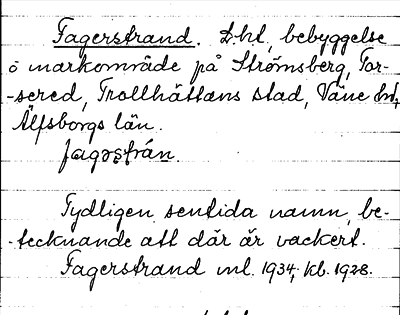 Fagerstrand. Lht, bebyggelse
o markområde på Strömsberg, Tor-
-sered, Trollhättans stad, Väne hd,
Älfsborgs län.
fagərstrán.
Tydligen sentida namn, be-
-tecknande att där är vackert.
Fagerstrand ml. 1934; kb. 1928.